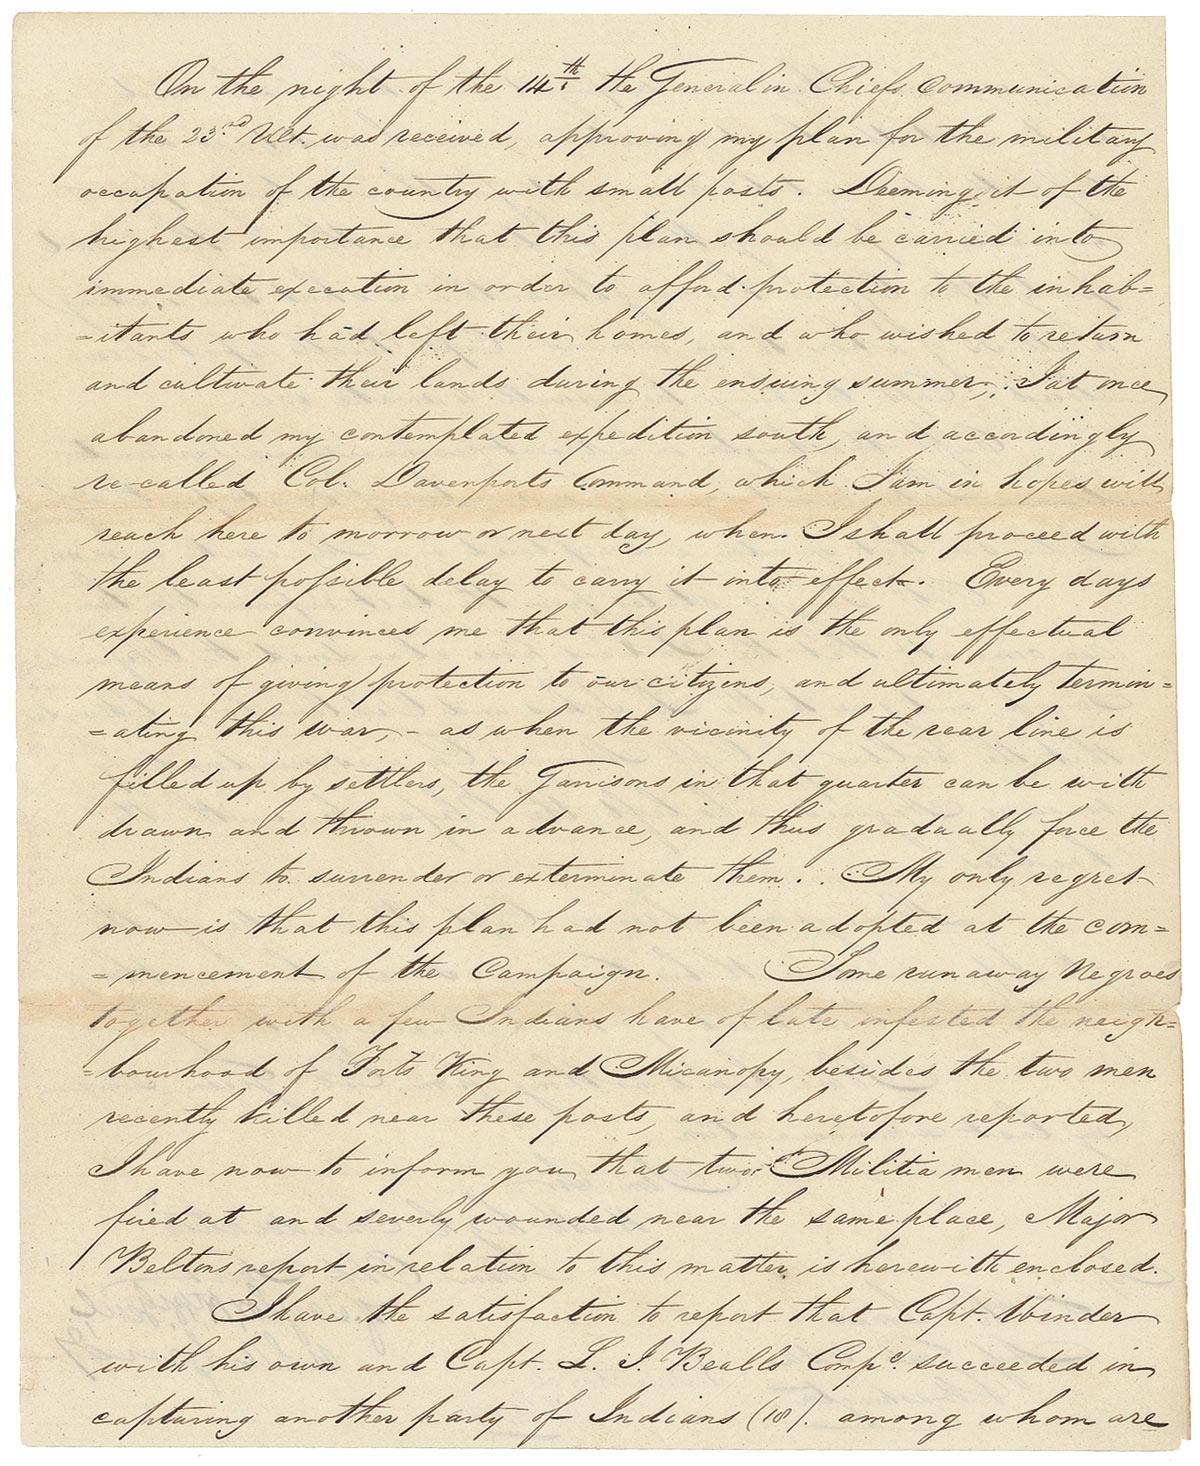 On the night of the 14th. the General in Chiefs Communication
of the 23rd Ult. was received, approving my plan for the military
occupation of the country with small posts. Deeming it of the
highest importance that this plan should be carried into
immediate execution in order to afford protection to the inhab=
=itants who had left their homes, and who wished to return
and cultivate their lands during the ensuing summer, I at once
abandoned my contemplated expedition south, and accordingly
re-called Col. Davenports Command, which I am in hopes will
reach here to morrow or next day, when I shall proceed with
the least possible delay to carry it into effect. Every days
experience convinces me that this plan is the only effectual
means of giving protection to our citizens, and ultimately termin=
=ating this war, - as when the vicinity of the rear line is
filled up by settlers, the Garrisons in that quarter can be with
drawn and thrown in advance, and thus gradually force the
Indians to surrender or exterminate them. My only regret
now is that this plan had not been adopted at the com=
=mencement of the Campaign. Some runaway Negroes
together with a few Indians have of late infested the neigh=
=bourhood of Forts King and Micanopy, besides the two men
recently killed near these posts, and heretofore reported,
I have now to inform you that two Militia men were
fired at and severly wounded near the same place, Major
Beltons report in relation to this matter is herewith enclosed.
I have the satisfaction to report that Capt. Winder
with his own and Capt. L. J. Bealls Compe. succeeded in
capturing another party of Indians (18). among whom are